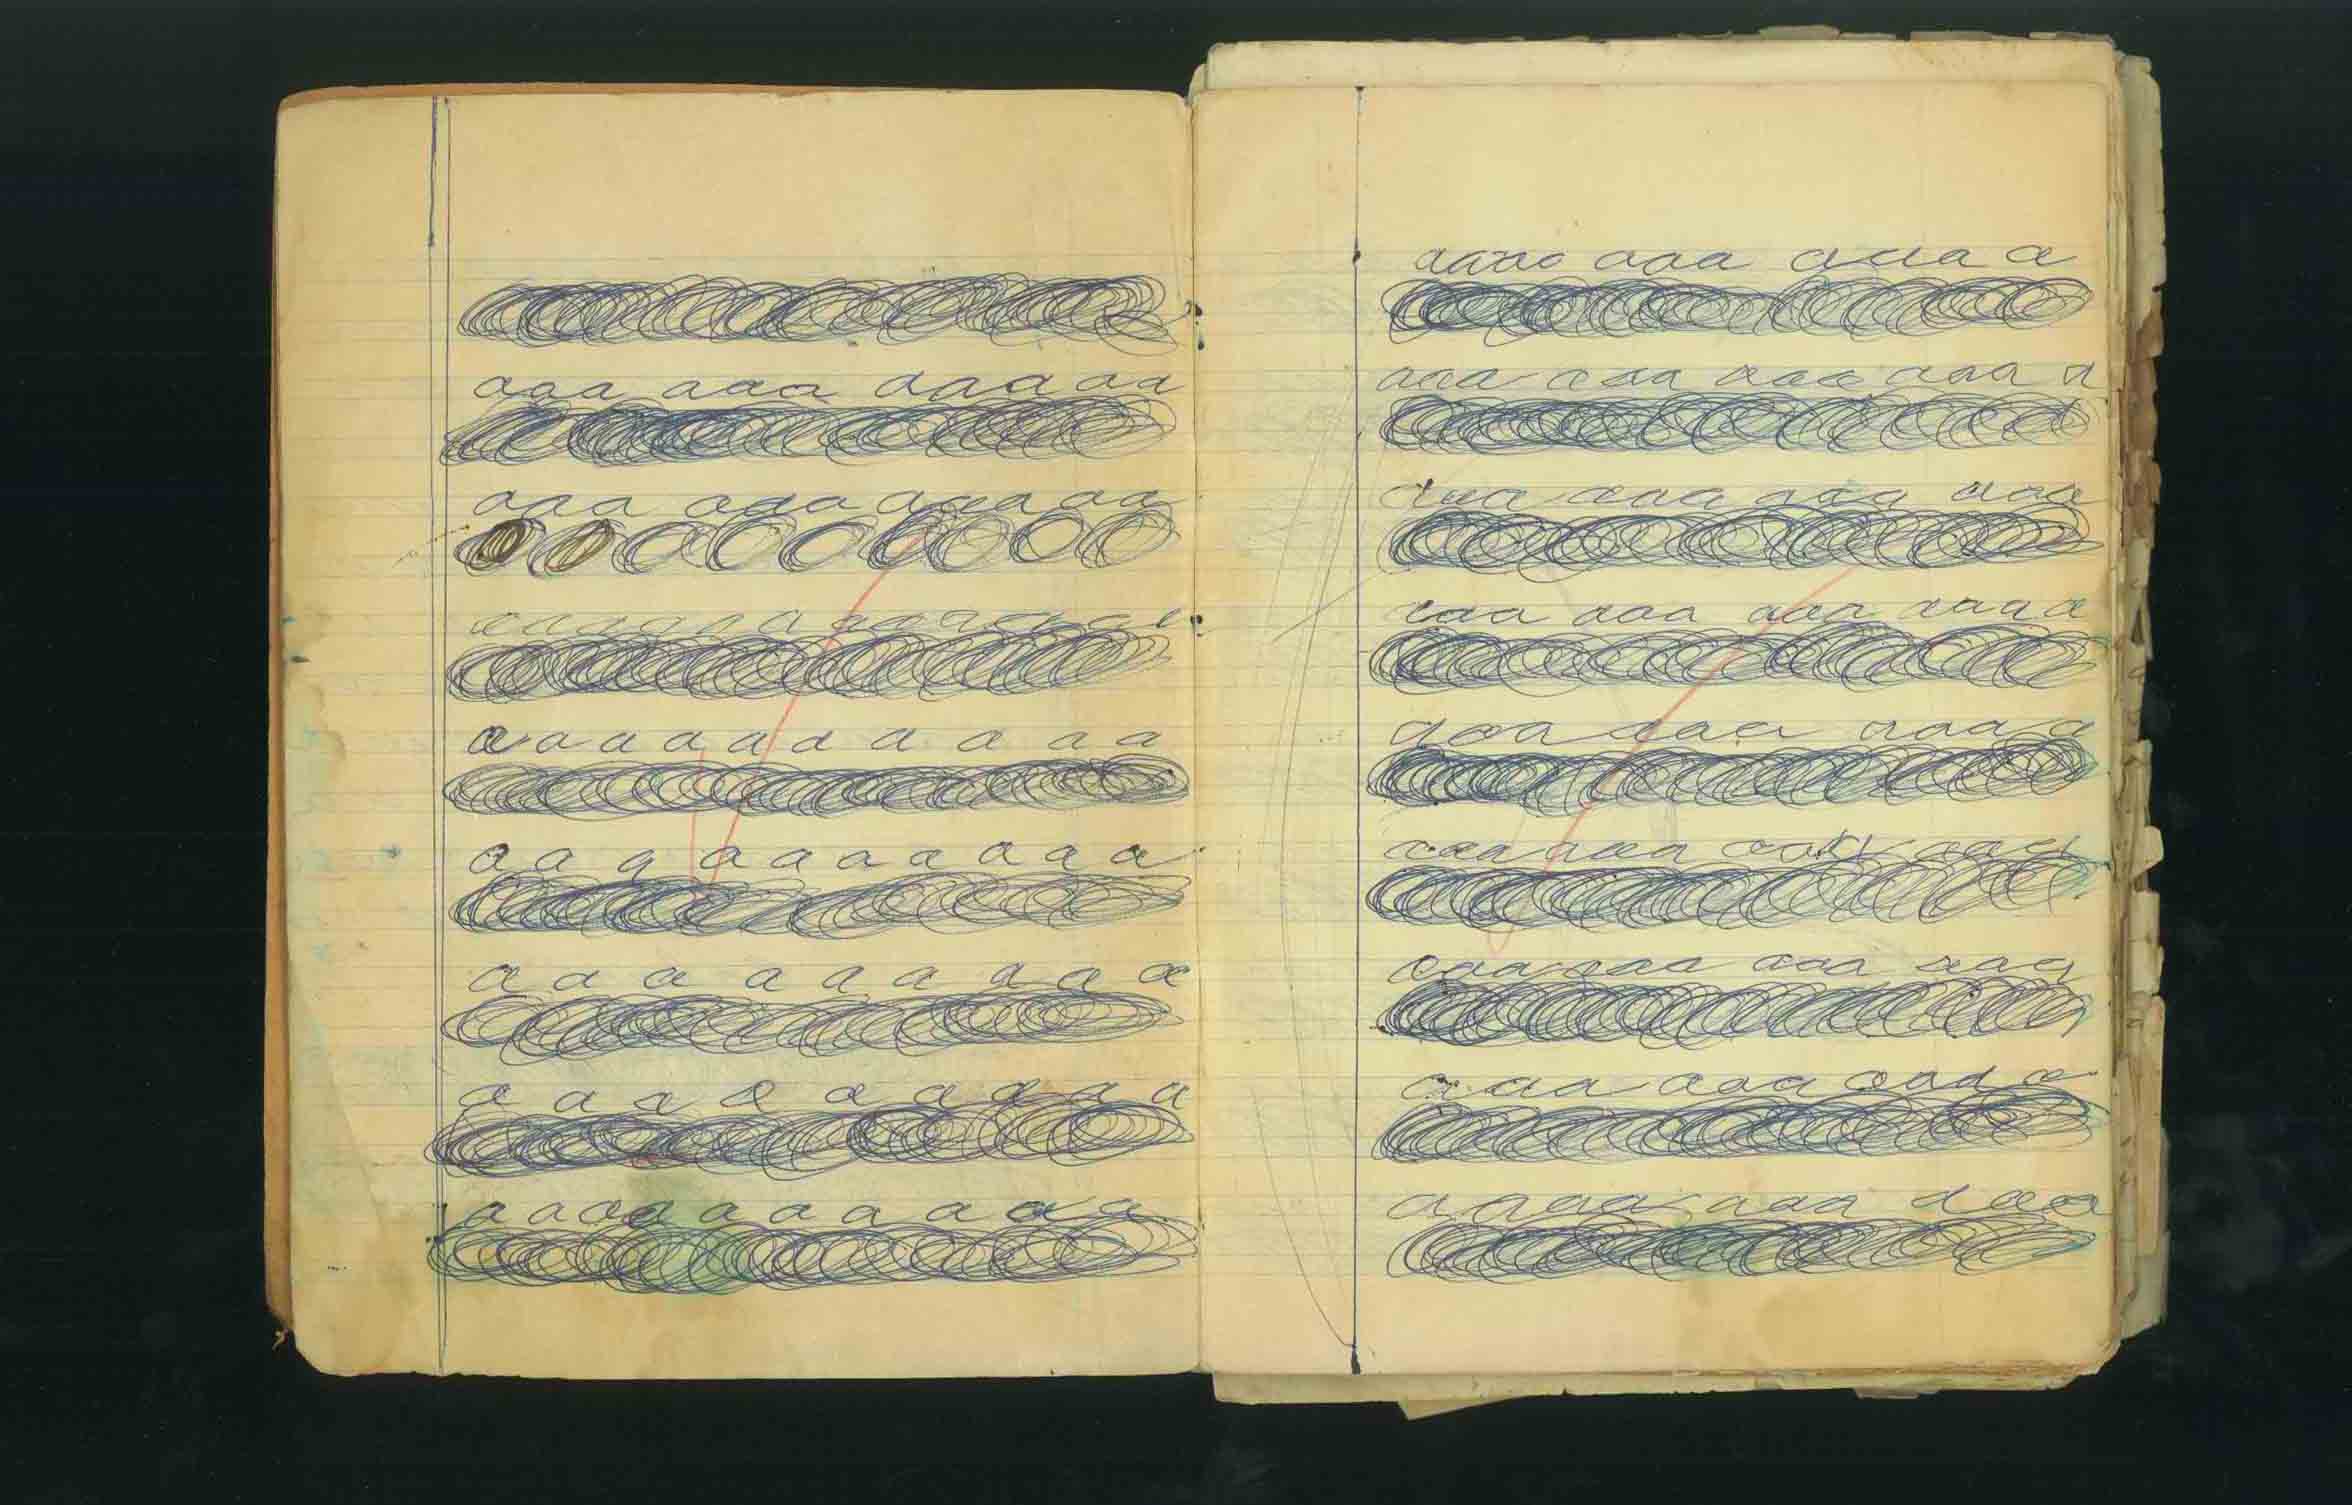 aaa aaa aaaa aa
aaa aaa aaaa aa
a a a a a a a a a a a a
a a a a a a a a a a
a a a a a a a a a a
a a a a a a a a a
a a a a a a a a a
a a a a a a a a a a a
aaaa aaa aaa a
aaa aaa aaa aaa a
aaa aaa aaa aaa
aaa aaa aaa aaaa
aaa aaa aaa a
aaa aaa aaa aaa
aaa aaa aaa aaa
aaa aaa aaa a
aaaa aaa aaa